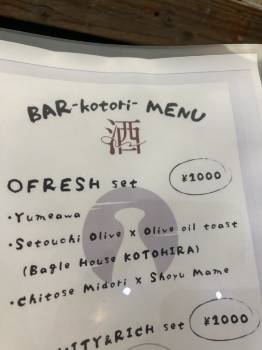 BAR-kotori- MENU
酒
OFRESH set ¥1000
・Yumeawa
・Setouchi Olive x Olive oil toast
(Bagle House KOTOHIRA)
・Chitose Midori x Shoyu Mame
ITY&RICH set ¥1000